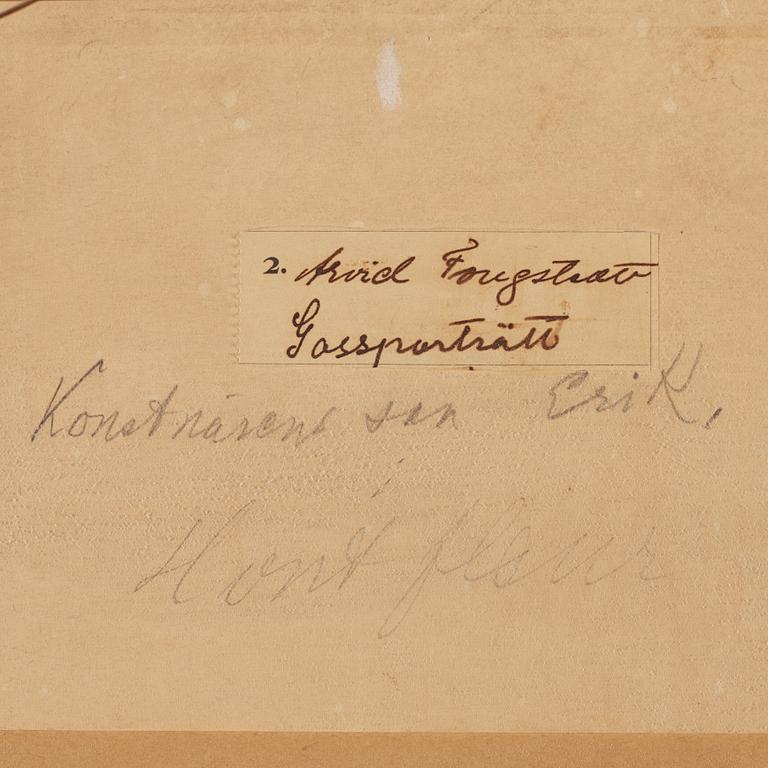 2. Arvid Fougstedt
Gossporträtt
Konstnärens son Erik,
i
Hont fleur